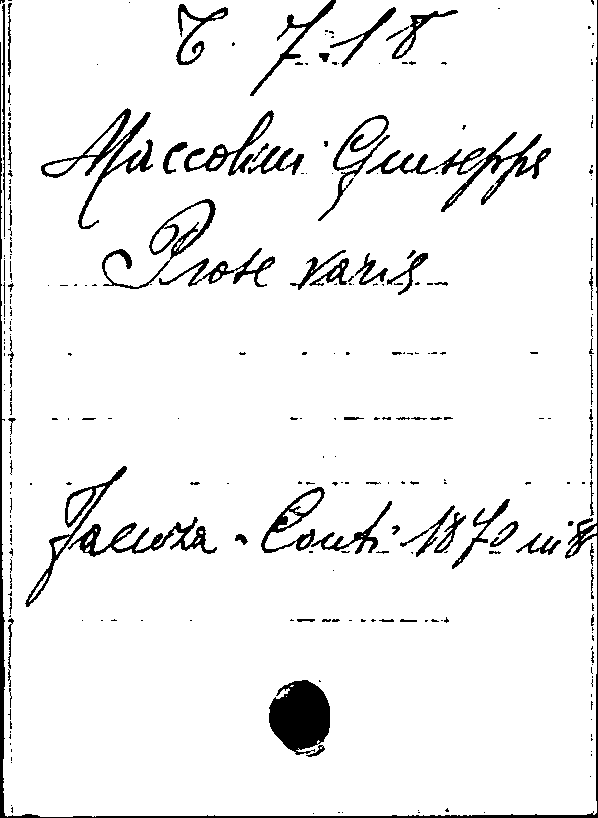 C. 7.18
Maccolini Giuseppe
Prose varie
Faenza. Conti 1870 in 8